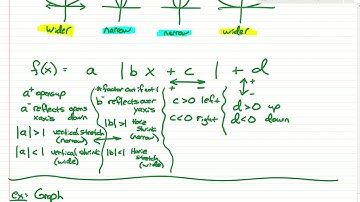 wider narrow narrow wider
f(x) = a |b x + c| + d
← → + -
↑ + ↓ -
a⁺ opens up
a⁻ reflects opens
xaxis down
|a| > 1 vertical stretch
(narrow)
|a| < 1 vertical shrink
(wide)
* factor out if not 1
b⁻ reflects over
yaxis
|b| > 1 Horiz
Shrink
(narrow)
|b| < 1 Horiz
Stretch
(wide)
c > 0 left
c < 0 right
d > 0 up
d < 0 down
ex: Graph